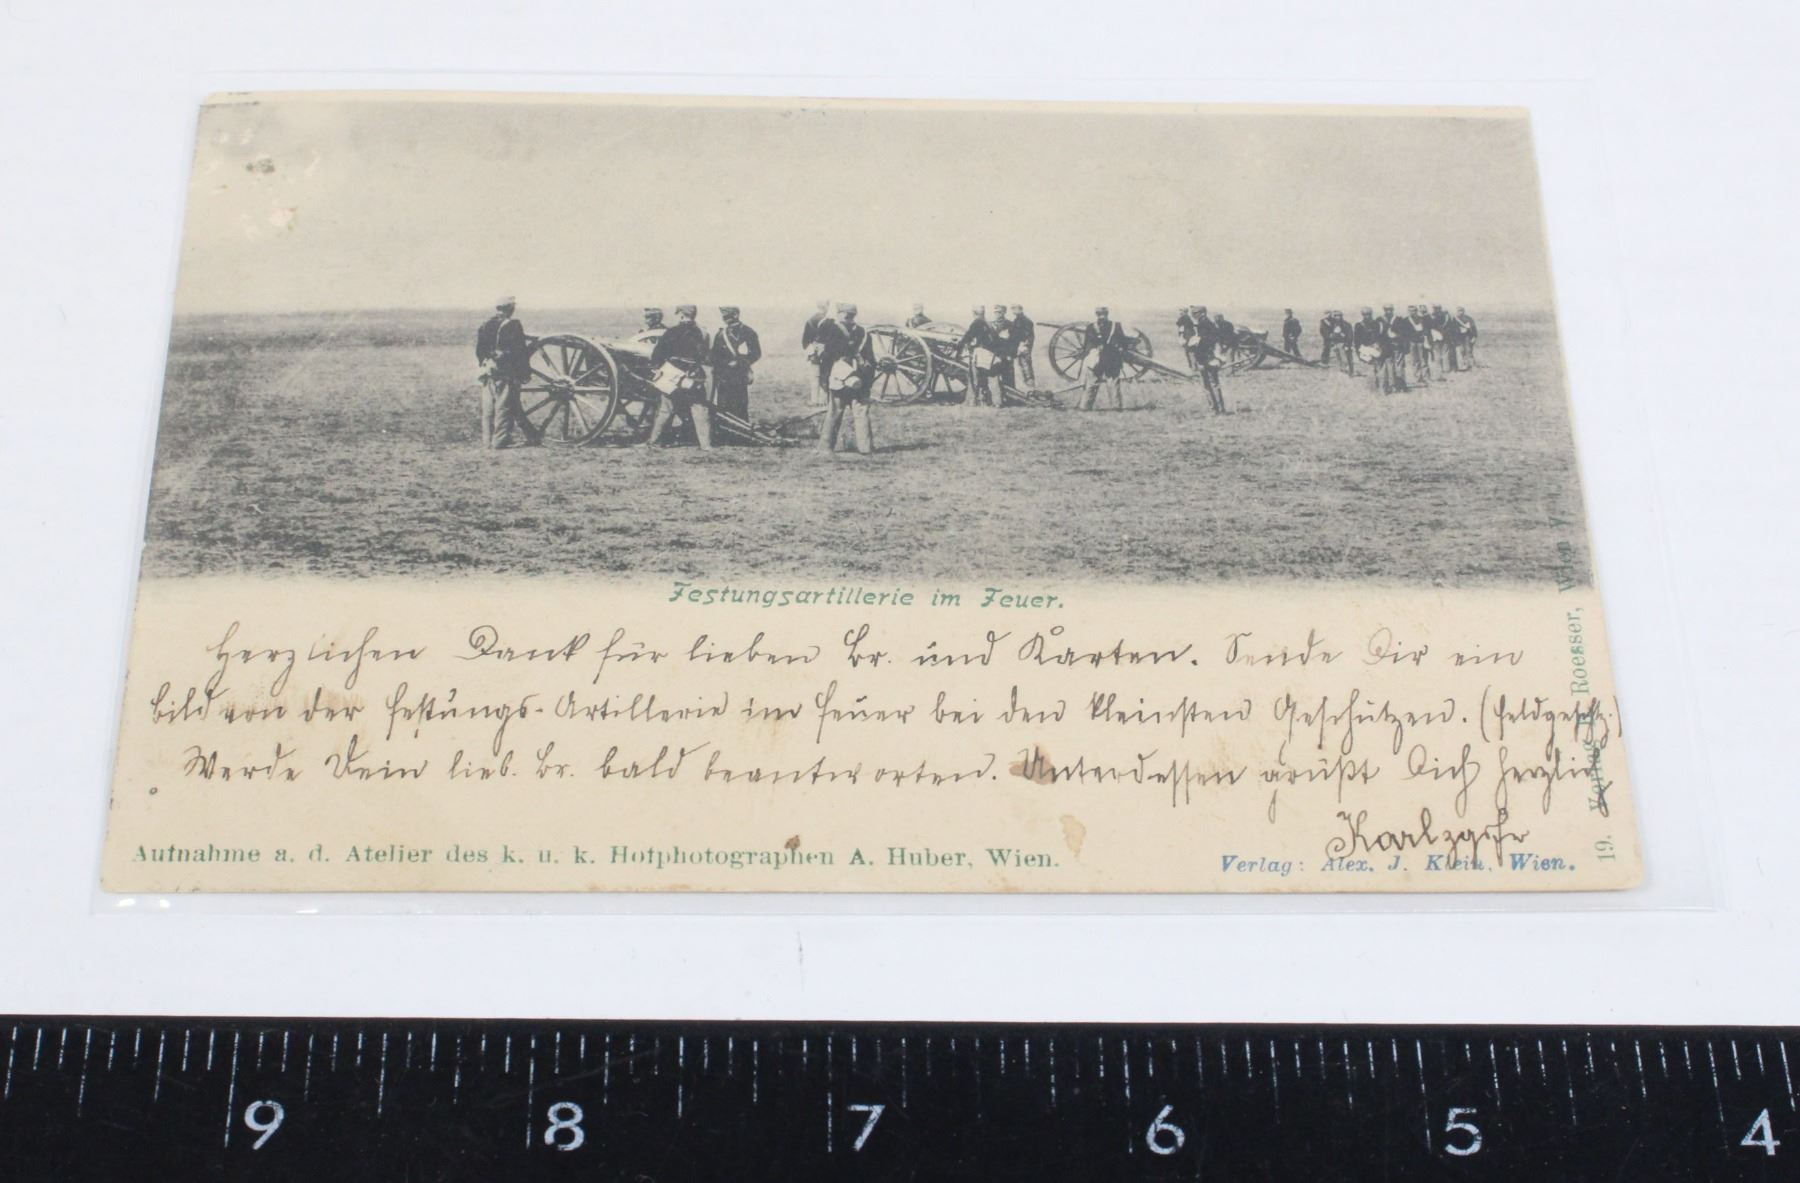 Festungsartillerie im Feuer.
Herzlichen Dank für lieben Br. und Karten. Sende Dir ein
Bild von der Festungs-Artillerie im Feuer bei den kleinsten Geschützen. (Feldgeschtz.)
Werde Dein lieb. Br. bald beantworten. Unterdessen grüßt Dich herzlich
Aufnahme a. d. Atelier des k. u. k. Hofphotographen A. Huber, Wien.
Verlag: Alex. J. Klein, Wien.
19. Verlag Roesser, Wien V.
9 8 7 6 5 4